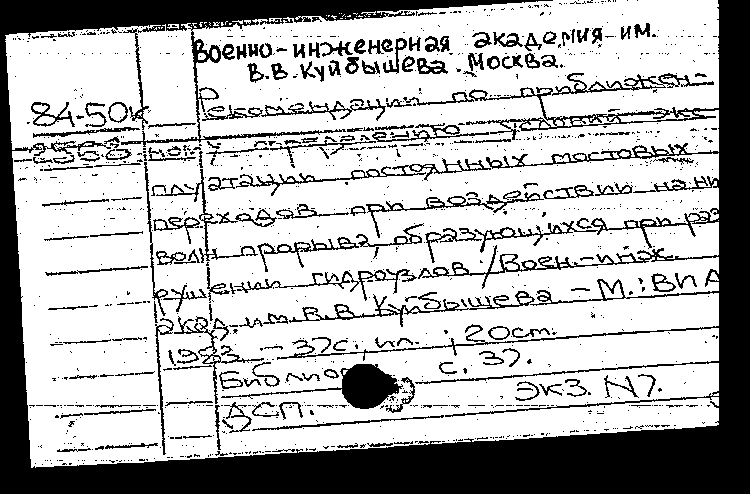 Военно-инженерная академия им.
В.В. Куйбышева. Москва.
84-50к Рекомендации по приближен-
2568 ному определению условий экс
плуатации постоянных мостовых
переходов при воздействии на ни
волн прорыва, образующихся при раз
рушении гидроузлов / Воен.-инж.
акад. им. В.В. Куйбышева - М.: ВИА
1983 - 37с., ил. ; 20см.
Библиог с. 37.
ДСП. экз. N7.